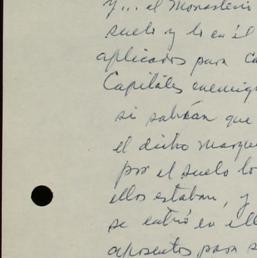 y... el Monasteri
suelo y lo en él
aplicados para Ca
Capitáles enemig
si sabían que
el dicho Marqu
por el suelo lo
ellos estaban, y
se entró en ell
aposentos para s